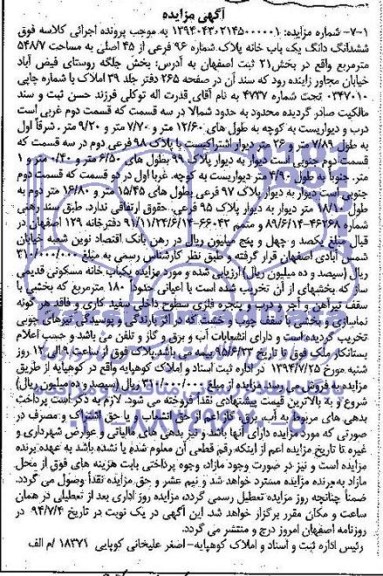 آگهی مزایده
۷-۱- شماره مزایده: ۱۳۹۴۰۴۳۰۲۱۴۵۰۰۰۰۰۱ به موجب پرونده اجرائی کلاسه فوق
ششدانگ دانگ یک باب خانه پلاک شماره ۹۶ فرعی از ۴۵ اصلی به مساحت ۵۴۸/۷
مترمربع واقع در بخش ۲۱ ثبت اصفهان به آدرس: بخش جلگه روستای فیض آباد
خیابان مجاور زاینده رود که سند آن در صفحه ۲۶۵ دفتر جلد ۳۹ املاک با شماره چاپی
۰۳۴۷۰۱۰ تحت شماره ۴۷۳۷ به نام آقای قدرت اله توکلی فرزند حسن ثبت و سند
مالکیت صادر گردیده محدود به حدود شمالا در سه قسمت که قسمت دوم غربی است
درب و دیواریست به کوچه به طول های ۱۲/۶۰ متر و ۷/۷۰ متر و ۹/۲۰ متر. شرقا اول
به طول ۷/۸۹ متر و ۲۶ متر دیوار اشتراکیست با پلاک ۹۸ فرعی دوم در سه قسمت که
قسمت دوم جنوبی است دیوار به دیوار پلاک ۹۹ بطول های ۶/۵۰ متر و ۰/۴۰ متر و ۱
متر. جنوبا بطول ۴/۹۰ متر دیواریست به کوچه. غربا اول در دو قسمت که قسمت دوم
جنوبی است دیوار به دیوار پلاک ۹۷ فرعی بطول های ۱۵/۴۵ متر و ۱۶/۸۰ متر دوم به
طول ۱۸/۱۰ متر دیوار به دیوار پلاک ۹۵ فرعی. حقوق ارتفاقی ندارد. طبق سند رهنی
شماره ۴۶۲۶۸-۸۹/۶/۱۴ و متمم ۶۶۰۴۳-۹۱/۱۱/۲۴ دفترخانه ۱۲۹ اصفهان در
قبال مبلغ یکصد و چهل و پنج میلیون ریال در رهن بانک اقتصاد نوین شعبه خیابان
شمس آبادی اصفهان قرار گرفته و طبق نظر کارشناس رسمی به مبلغ ۳۱۰/۰۰۰/۰۰۰
ریال (سیصد و ده میلیون ریال) ارزیابی شده و مورد مزایده یکباب خانه مسکونی قدیمی
که بخشهای از آن تخریب شده است با اعیانی حدود ۱۸۰ مترمربع که بخشی با
سقف تیرآهن و آجر و درب و پنجره فلزی سطوح داخلی سفید کاری و فاقد هر گونه
نماسازی و بخشی با سقف چوب و خشت که در اثر بارندگی و پوسیدگی تیرهای چوبی
تخریب گردیده است و دارای انشعابات آب و برق و گاز و تلفن می باشد و حسب اعلام
بستانکار ملک فوق تا تاریخ ۹۵/۶/۲۳ بیمه می باشد پلاک فوق از ساعت ۹ الی ۱۲ روز
شنبه مورخ ۱۳۹۴/۷/۲۵ در اداره ثبت اسناد و املاک کوهپایه واقع در کوهپایه از طریق
مزایده به فروش می رسد. مزایده از مبلغ ۳۱۰/۰۰۰/۰۰۰ ریال (سیصد و ده میلیون ریال)
شروع و به بالاترین قیمت پیشنهادی نقدا فروخته می شود. لازم به ذکر است پرداخت
بدهی های مربوط به آب، برق، گاز اعم از حق انشعاب و یا حق اشتراک و مصرف در
صورتی که مورد مزایده دارای آنها باشد و نیز بدهی های مالیاتی و عوارض شهرداری و
غیره تا تاریخ مزایده اعم از اینکه رقم قطعی آن معلوم شده یا نشده باشد به عهده برنده
مزایده است و نیز در صورت وجود مازاد، وجوه پرداختی بابت هزینه های فوق از محل
مازاد به برنده مزایده مسترد خواهد شد و نیم عشر و حق مزایده نقدا وصول می گردد.
ضمنا چنانچه روز مزایده تعطیل رسمی گردد، مزایده روز اداری بعد از تعطیلی در همان
ساعت و مکان مقرر برگزار خواهد شد. این آگهی در یک نوبت در تاریخ ۹۴/۷/۴ در
روزنامه اصفهان امروز درج و منتشر می گردد.
رئیس اداره ثبت و اسناد و املاک کوهپایه- اصغر علیخانی کوپایی ۱۸۳۷۱ / م الف